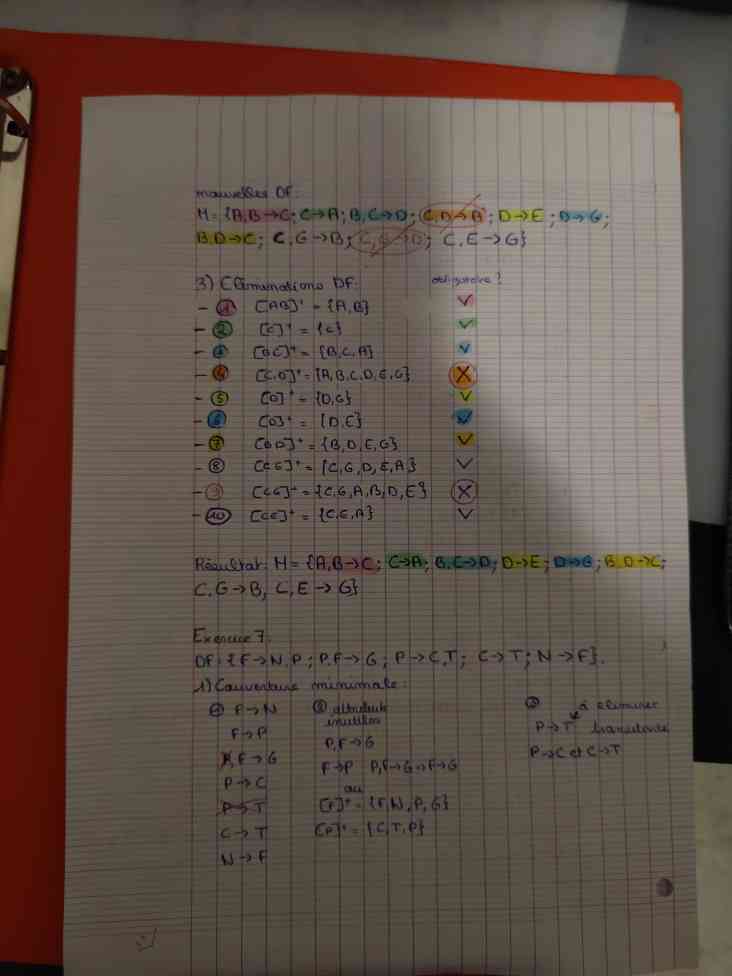 nouvelles DF:
M = {A,B→C; C→A; B,C→D; C,D→B; D→E; D→G;
B,D→C; C,G→B; C,G→D; C,E→G}
3) Eliminations DF: obligatoire?
- 1 [AB]+ = {A,B} V
- 2 [C]+ = {C} V
- 3 [BC]+ = {B,C,A} V
- 4 [C,D]+ = {A,B,C,D,E,G} X
- 5 [D]+ = {D,G} V
- 6 [D]+ = {D,E} V
- 7 [BD]+ = {B,D,E,G} V
- 8 [CG]+ = {C,G,D,E,A} V
- 9 [CG]+ = {C,G,A,B,D,E} X
- 10 [CE]+ = {C,E,A} V
Résultat: M = {A,B→C; C→A; B,C→D; D→E; D→G; B,D→C;
C,G→B, C,E→G}
Exercice 7:
DF: {F→N,P; P,F→G; P→C,T; C→T; N→F}.
1) Couverture minimale:
F→N
F→P
P,F→G
P→C
P→T
C→T
N→F
② attributs
inutiles
P,F→G
F→P P,F→G → F→G
ou
[F]+ = {F,N,P,G}
[P]+ = {C,T,P}
③ à éliminer
P→T transitivité
P→C et C→T